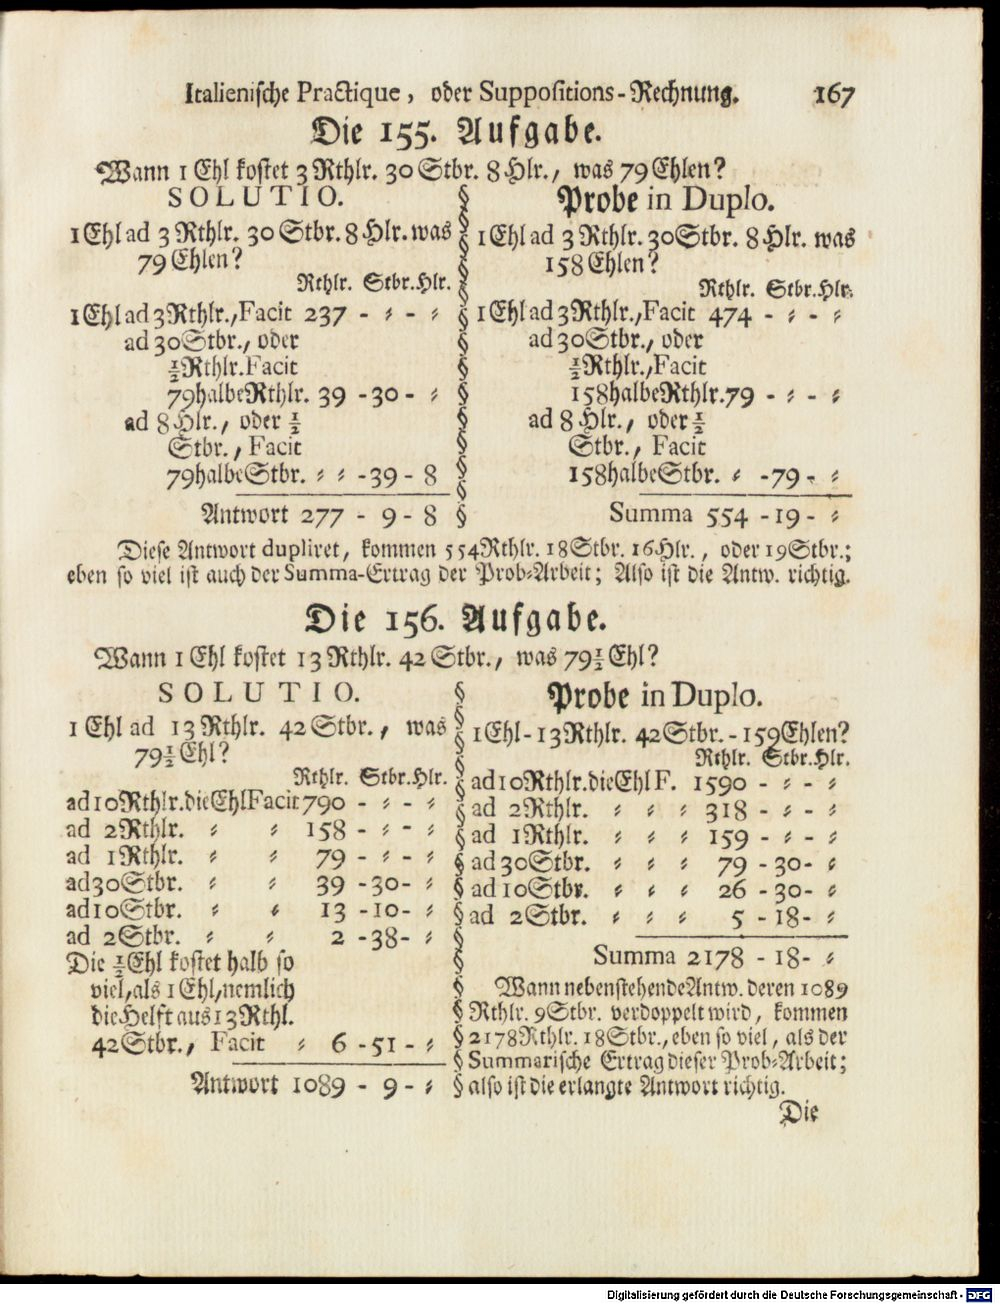 Italienische Practique, oder Suppositions-Rechnung. 167
Die 155. Aufgabe.
Wann 1 Ehl kostet 3 Rthlr. 30 Stbr. 8 Hlr., was 79 Ehlen?
SOLUTIO.
1 Ehl ad 3 Rthlr. 30 Stbr. 8 Hlr. was
79 Ehlen?
Rthlr. Stbr. Hlr.
1 Ehl ad 3 Rthlr., Facit 237 - ⸗ - ⸗
ad 30 Stbr., oder
½ Rthlr. Facit
79 halbe Rthlr. 39 - 30 - ⸗
ad 8 Hlr., oder ½
Stbr., Facit
79 halbe Stbr. ⸗ ⸗ - 39 - 8
Antwort 277 - 9 - 8
Probe in Duplo.
1 Ehl ad 3 Rthlr. 30 Stbr. 8 Hlr. was
158 Ehlen?
Rthlr. Stbr. Hlr.
1 Ehl ad 3 Rthlr., Facit 474 - ⸗ - ⸗
ad 30 Stbr., oder
½ Rthlr., Facit
158 halbe Rthlr. 79 - ⸗ - ⸗
ad 8 Hlr., oder ½
Stbr., Facit
158 halbe Stbr. ⸗ - 79 - ⸗
Summa 554 - 19 - ⸗
Diese Antwort dupliret, kommen 554 Rthlr. 18 Stbr. 16 Hlr., oder 19 Stbr.;
eben so viel ist auch der Summa-Ertrag der Prob⸗Arbeit; Also ist die Antw. richtig.
Die 156. Aufgabe.
Wann 1 Ehl kostet 13 Rthlr. 42 Stbr., was 79½ Ehl?
SOLUTIO.
1 Ehl ad 13 Rthlr. 42 Stbr., was
79½ Ehl?
Rthlr. Stbr. Hlr.
ad 10 Rthlr. die Ehl Facit 790 - ⸗ - ⸗
ad 2 Rthlr. ⸗ ⸗ 158 - ⸗ - ⸗
ad 1 Rthlr. ⸗ ⸗ 79 - ⸗ - ⸗
ad 30 Stbr. ⸗ ⸗ 39 - 30 - ⸗
ad 10 Stbr. ⸗ ⸗ 13 - 10 - ⸗
ad 2 Stbr. ⸗ ⸗ 2 - 38 - ⸗
Die ½ Ehl kostet halb so
viel, als 1 Ehl, nemlich
die Helft aus 13 Rthl.
42 Stbr., Facit ⸗ 6 - 51 - ⸗
Antwort 1089 - 9 - ⸗
Probe in Duplo.
1 Ehl - 13 Rthlr. 42 Stbr. - 159 Ehlen?
Rthlr. Stbr. Hlr.
ad 10 Rthlr. die Ehl F. 1590 - ⸗ - ⸗
ad 2 Rthlr. ⸗ ⸗ ⸗ 318 - ⸗ - ⸗
ad 1 Rthlr. ⸗ ⸗ ⸗ 159 - ⸗ - ⸗
ad 30 Stbr. ⸗ ⸗ ⸗ 79 - 30 - ⸗
ad 10 Stbr. ⸗ ⸗ ⸗ 26 - 30 - ⸗
ad 2 Stbr. ⸗ ⸗ ⸗ 5 - 18 - ⸗
Summa 2178 - 18 - ⸗
Wann nebenstehende Antw. deren 1089
Rthlr. 9 Stbr. verdoppelt wird, kommen
2178 Rthlr. 18 Stbr., eben so viel, als der
Summarische Ertrag dieser Prob⸗Arbeit;
also ist die erlangte Antwort richtig.
Die
Digitalisierung gefördert durch die Deutsche Forschungsgemeinschaft - DFG